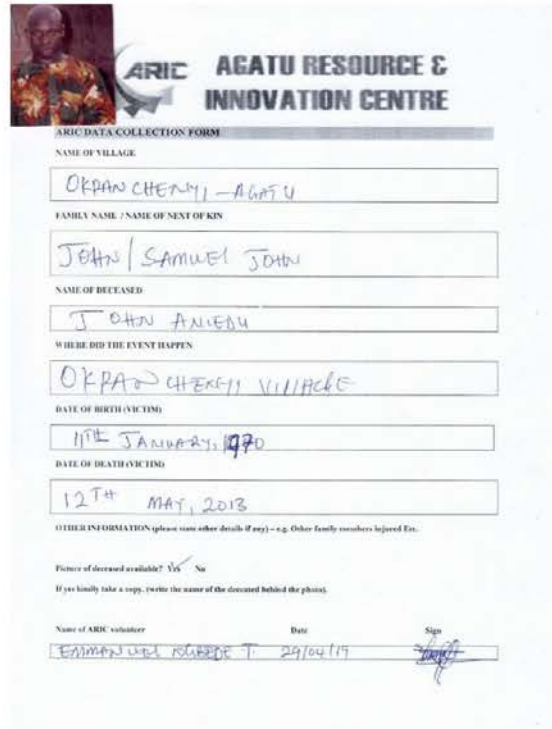 ARIC AGATU RESOURCE &
INNOVATION CENTRE
ARIC DATA COLLECTION FORM
NAME OF VILLAGE
OKPANCHENYI - AGATU
FAMILY NAME / NAME OF NEXT OF KIN
JOHN / SAMUEL JOHN
NAME OF DECEASED
JOHN ANIEBU
WHERE DID THE EVENT HAPPEN
OKPANCHENYI VILLAGE
DATE OF BIRTH (VICTIM)
11TH JANUARY, 1970
DATE OF DEATH (VICTIM)
12TH MAY, 2013
OTHER INFORMATION (please state other details if any) – e.g. Other family members injured Etc.
Picture of deceased available? Yes No
If yes kindly take a copy. (write the name of the deceased behind the photo).
Name of ARIC volunteer Date Sign
EMMANUEL T. 29/04/19